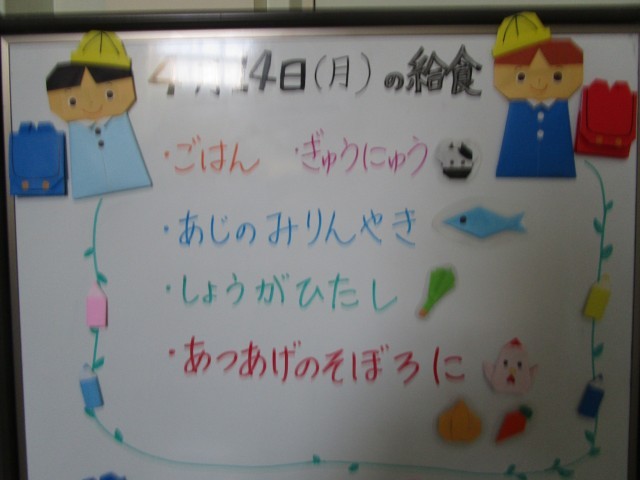 4月14日(月)の給食
・ごはん ・ぎゅうにゅう
・あじのみりんやき
・しょうがひたし
・あつあげのそぼろに